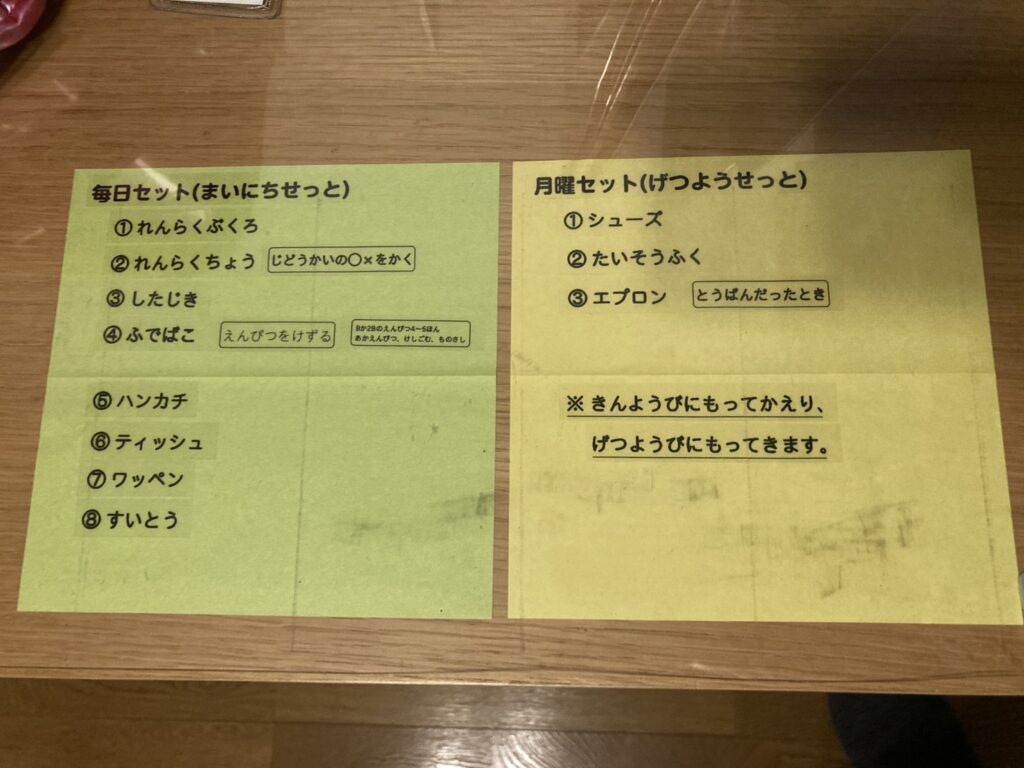 毎日セット(まいにちせっと)
①れんらくぶくろ
②れんらくちょう じどうかいの〇×をかく
③したじき
④ふでばこ えんぴつをけずる
Bか2Bのえんぴつ4～5ほん
あかえんぴつ、けしごむ、ものさし
⑤ハンカチ
⑥ティッシュ
⑦ワッペン
⑧すいとう
月曜セット(げつようせっと)
①シューズ
②たいそうふく
③エプロン とうばんだったとき
※ きんようびにもってかえり、
げつようびにもってきます。